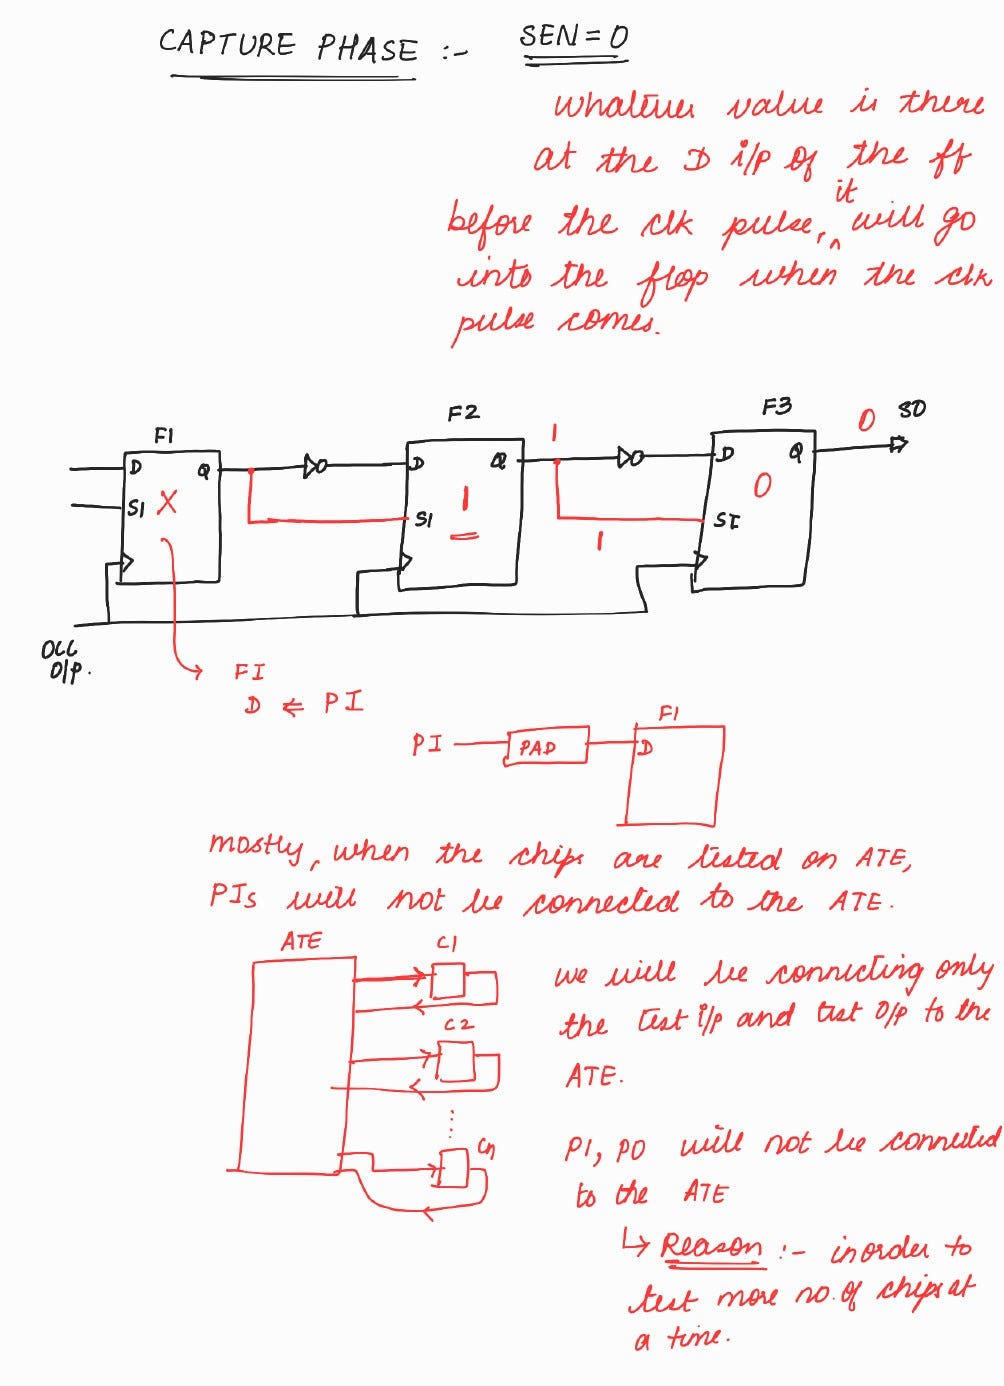 CAPTURE PHASE :- SEN = 0
whatever value is there
at the D i/p of the ff
before the clk pulse, it will go
into the flop when the clk
pulse comes.
F1 F2 F3
0 SO
1
D Q D Q D Q
SI X SI 1 SI 0
1
OCC
O/P.
FI
D ⇐ PI
F1
PI PAD D
mostly, when the chips are tested on ATE,
PIs will not be connected to the ATE.
ATE C1
we will be connecting only
the test i/p and test O/p to the
ATE.
C2
Cn
PI, PO will not be connected
to the ATE
↳ Reason :- inorder to
test more no. of chips at
a time.